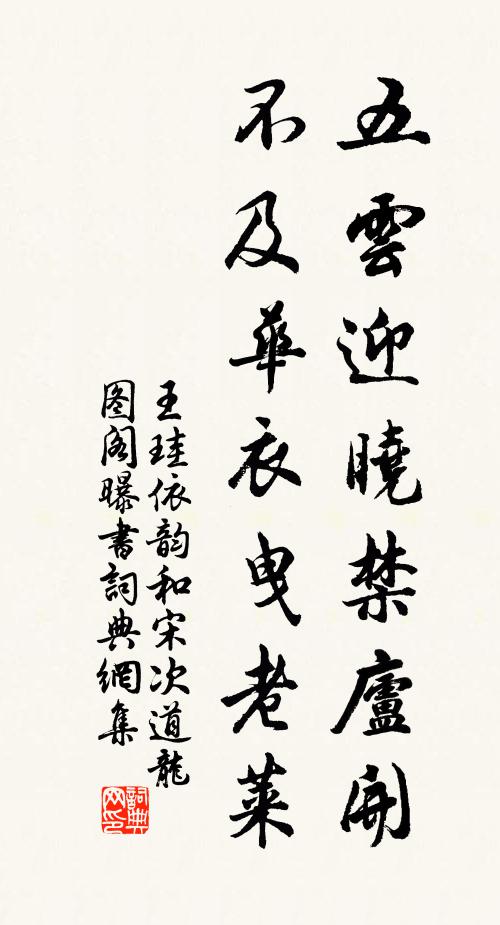 五雲迎曉禁廬開
不及華衣曳老萊
王珪依韵和宋次道龍
图阁曝书詞典網集
詞典网印